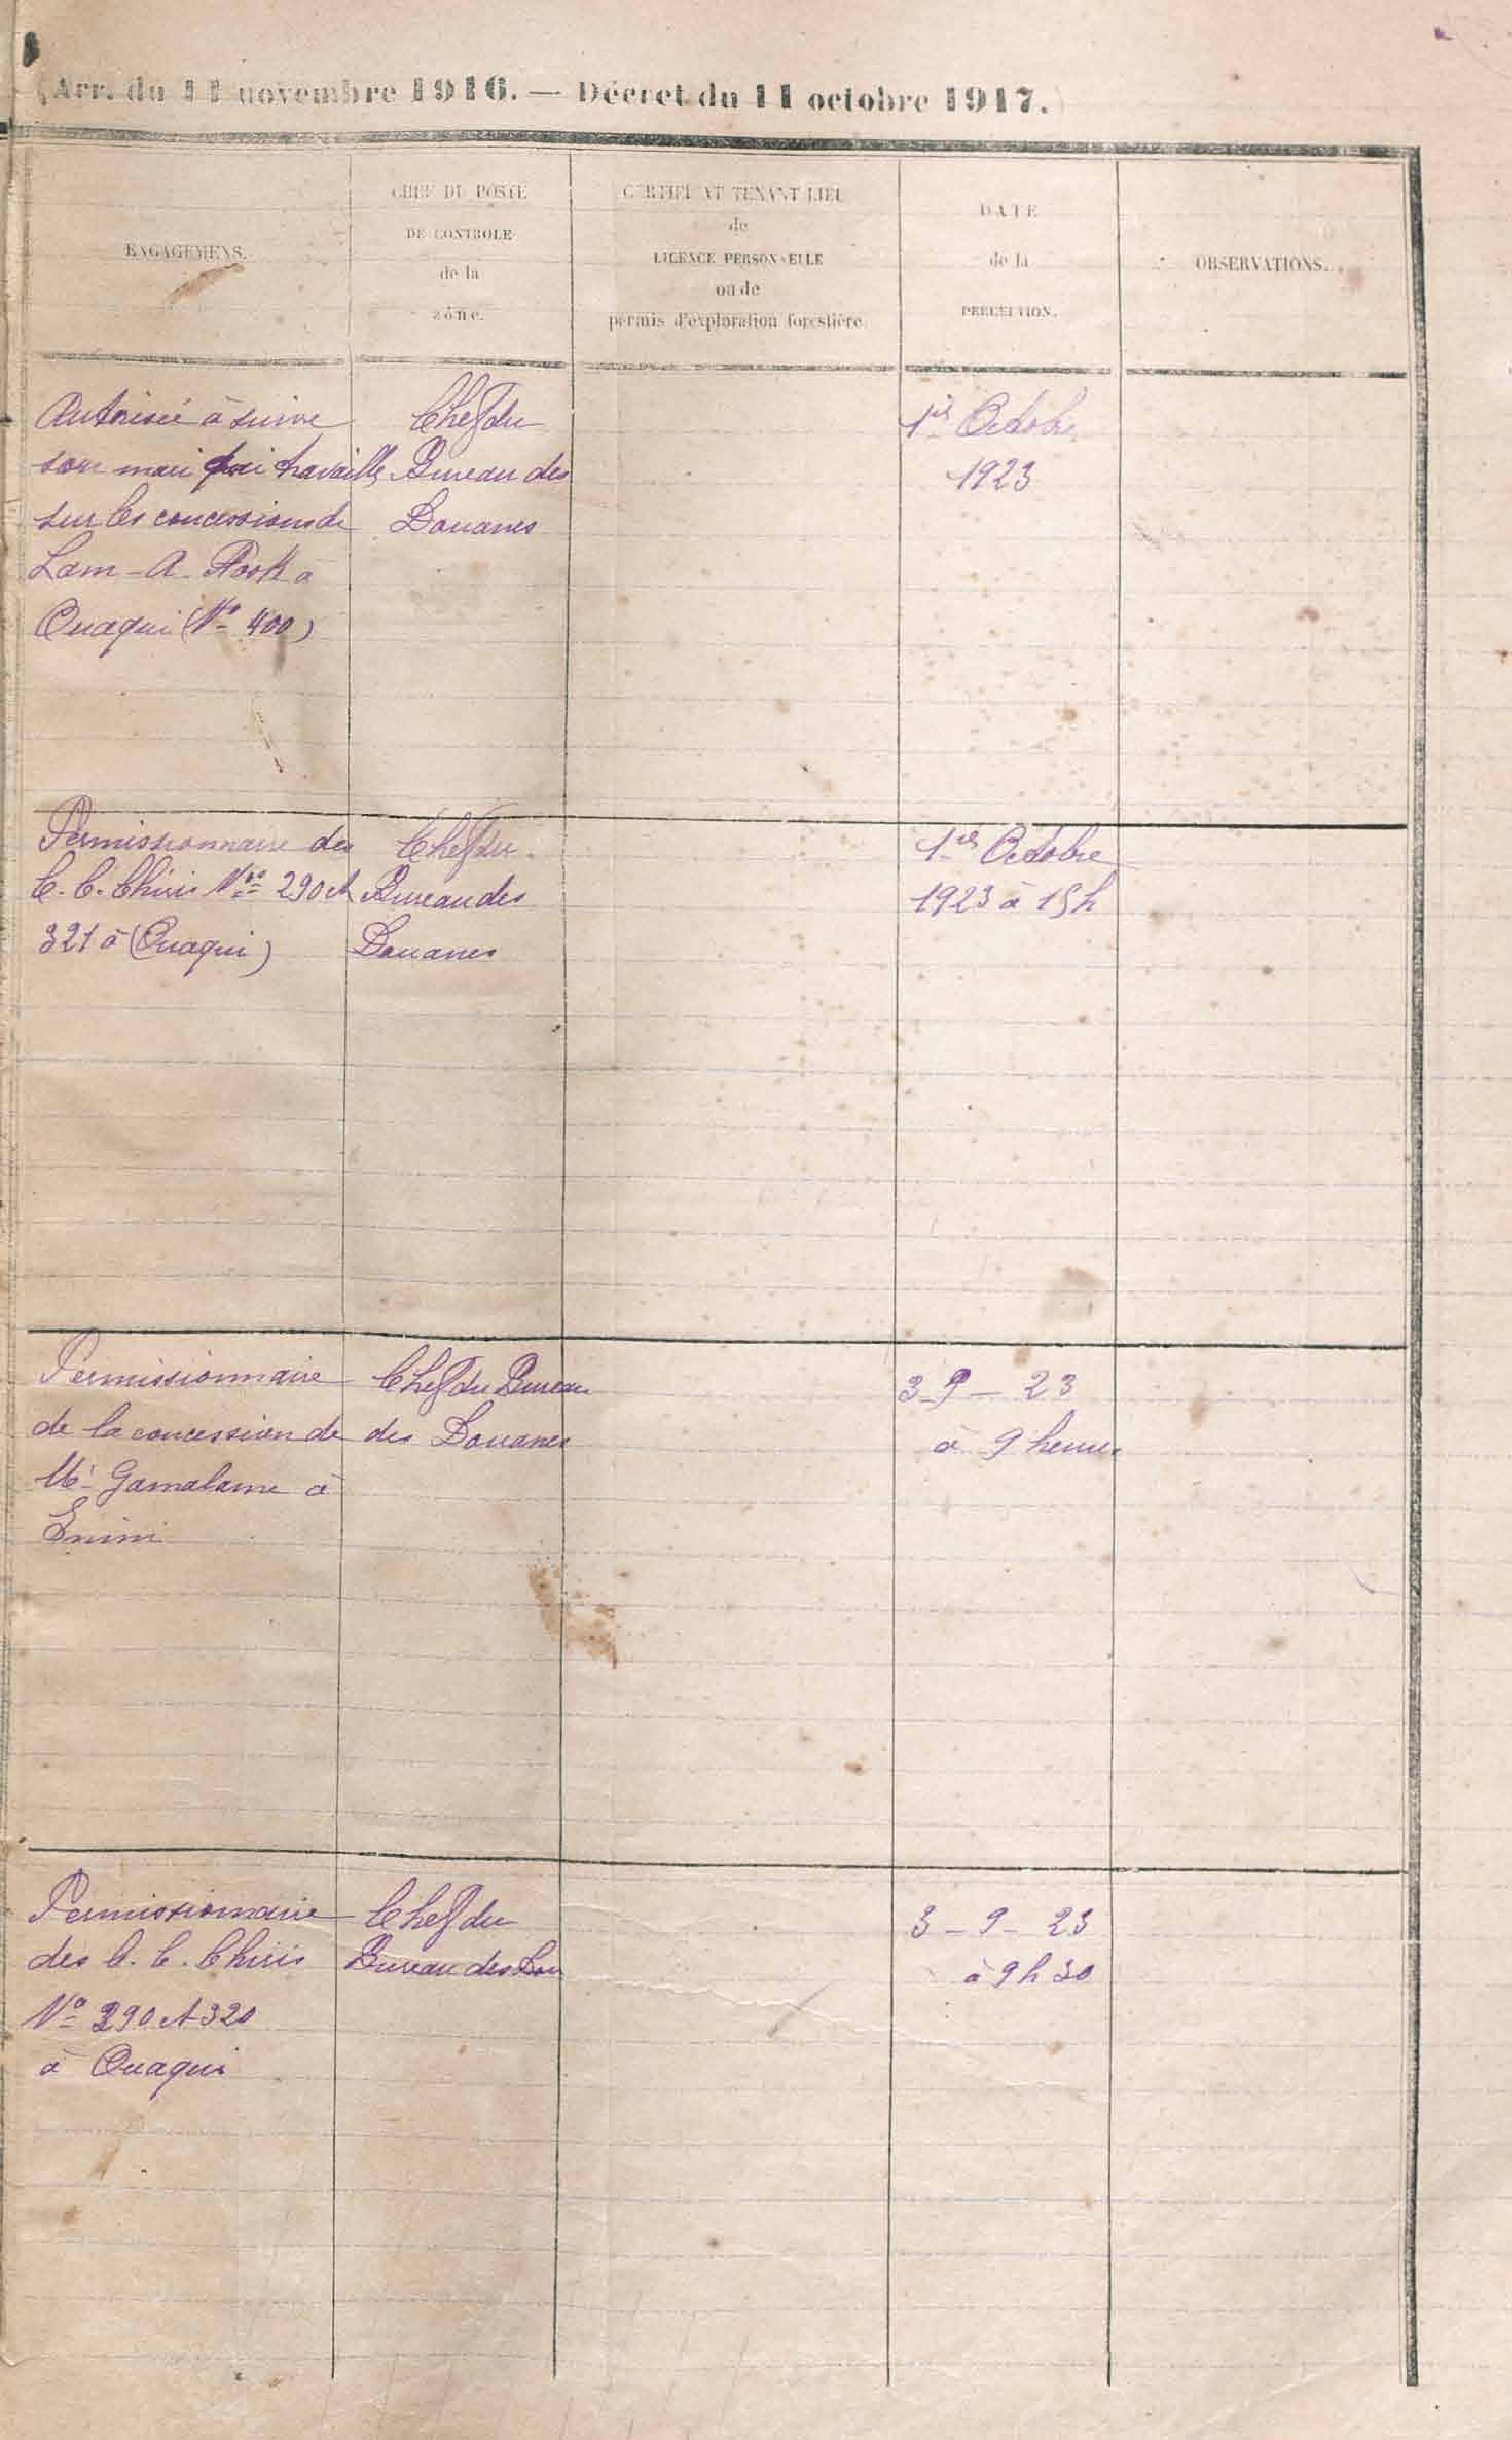 Arr. du 11 novembre 1916. — Décret du 11 octobre 1917.
ENGAGEMENS.
CHEF DU POSTE
DE CONTROLE
de la
zône.
CERTIFICAT TENANT LIEU
de
LICENCE PERSONNELLE
ou de
permis d'exploration forestière.
DATE
de la
PERCEPTION.
OBSERVATIONS.
Autorisée à suivre
son mari qui travaille
sur les concessions de
Lam-A-Fook à
Ouaqui (N° 400)
Chef du
Bureau des
Douanes
1er Octobre
1923
Permissionnaire des
C. C. Chiris Nos 290 et
321 à (Ouaqui)
Chef du
Bureau des
Douanes
1er Octobre
1923 à 15h
Permissionnaire
de la concession de
Mr Gamalame à
Inini
Chef du Bureau
des Douanes
3-9-23
à 9 heures
Permissionnaire
des C. C. Chiris
N° 290 et 320
à Ouaqui
Chef du
Bureau des Dou
3-9-23
à 9h30